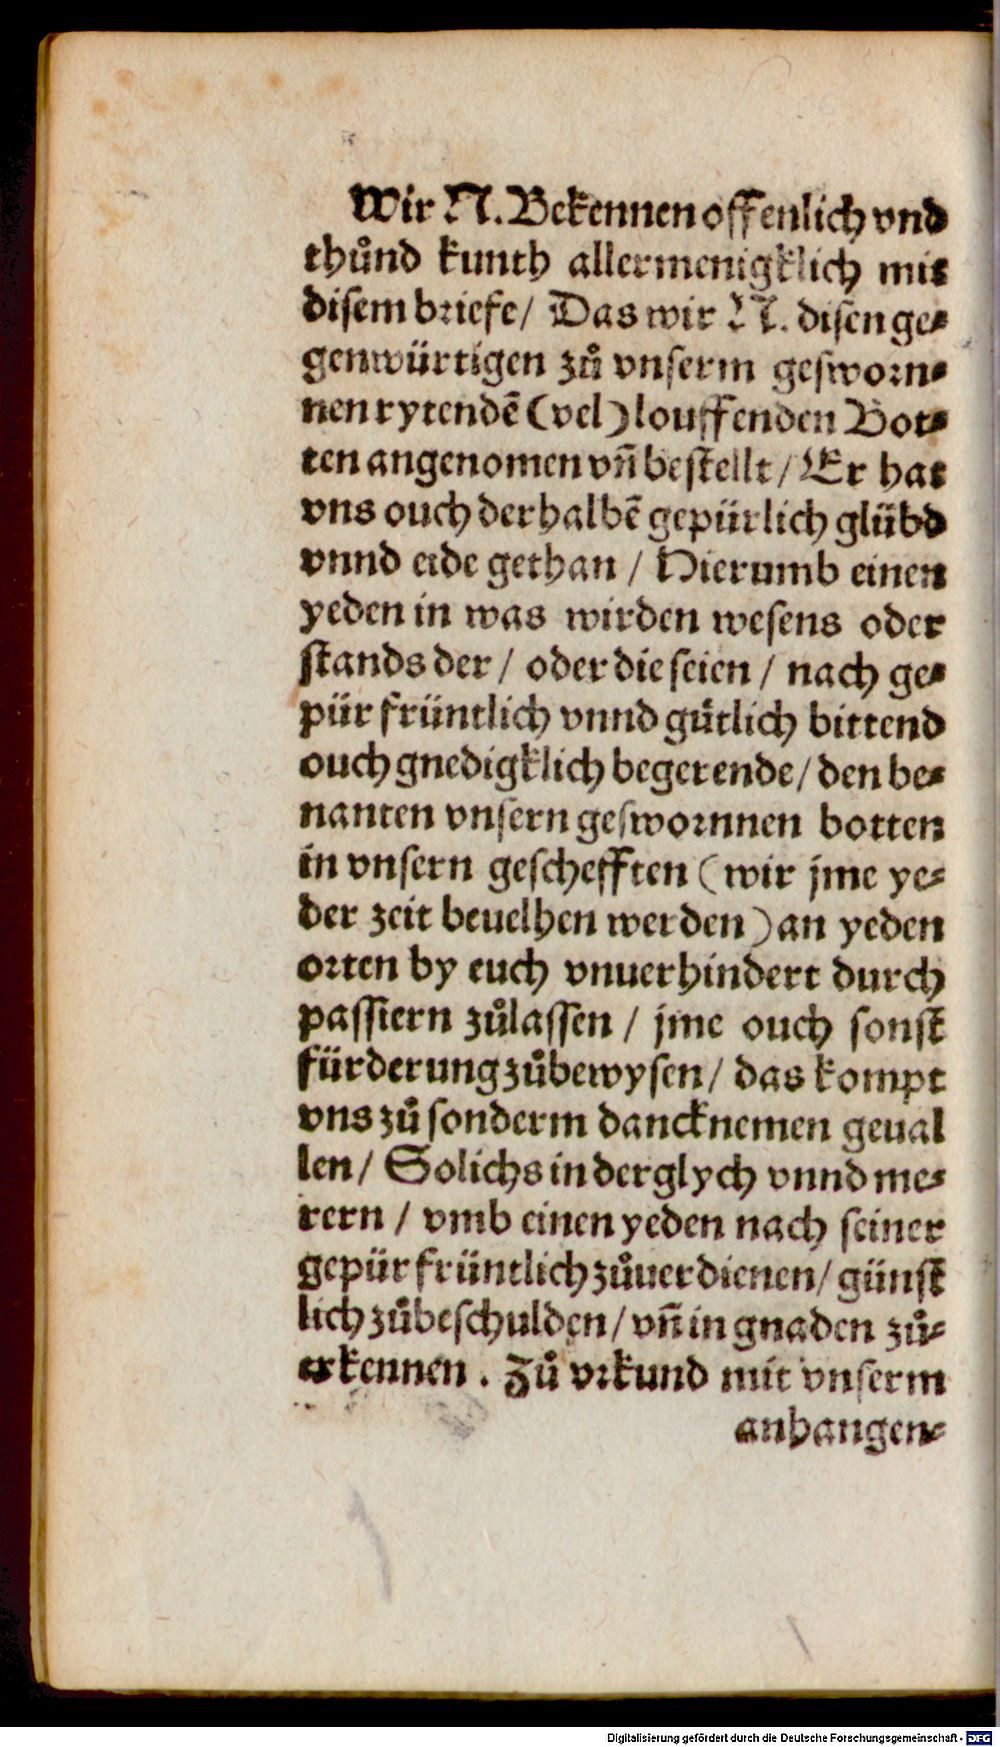 Wir N. Bekennen offenlich vnd
thůnd kunth allermenigklich mit
disem briefe/ Das wir N. disen ge⸗
genwürtigen zů vnserm gesworn⸗
nen rytendẽ (vel) louffenden Bot⸗
ten angenomen vñ bestellt/ Er hat
vns ouch derhalbẽ gepürlich glübd
vnnd eide gethan / Hierumb einen
yeden in was wirden wesens oder
stands der / oder die seien / nach ge⸗
pür früntlich vnnd gütlich bittend
ouch gnedigklich begerende/ den be⸗
nanten vnsern geswornnen botten
in vnsern geschefften (wir jme ye⸗
der zeit beuelhen werden) an yeden
orten by euch vnuerhindert durch
passiern zůlassen / jme ouch sonst
fürderung zůbewysen/ das kompt
vns zů sonderm dancknemen geual
len/ Solichs in derglych vnnd me⸗
rern / vmb einen yeden nach seiner
gepür früntlich zůuerdienen/ günst
lich zůbeschulden/ vñ in gnaden zů⸗
erkennen . Zů vrkund mit vnserm
anhangen⸗
Digitalisierung gefördert durch die Deutsche Forschungsgemeinschaft - DFG